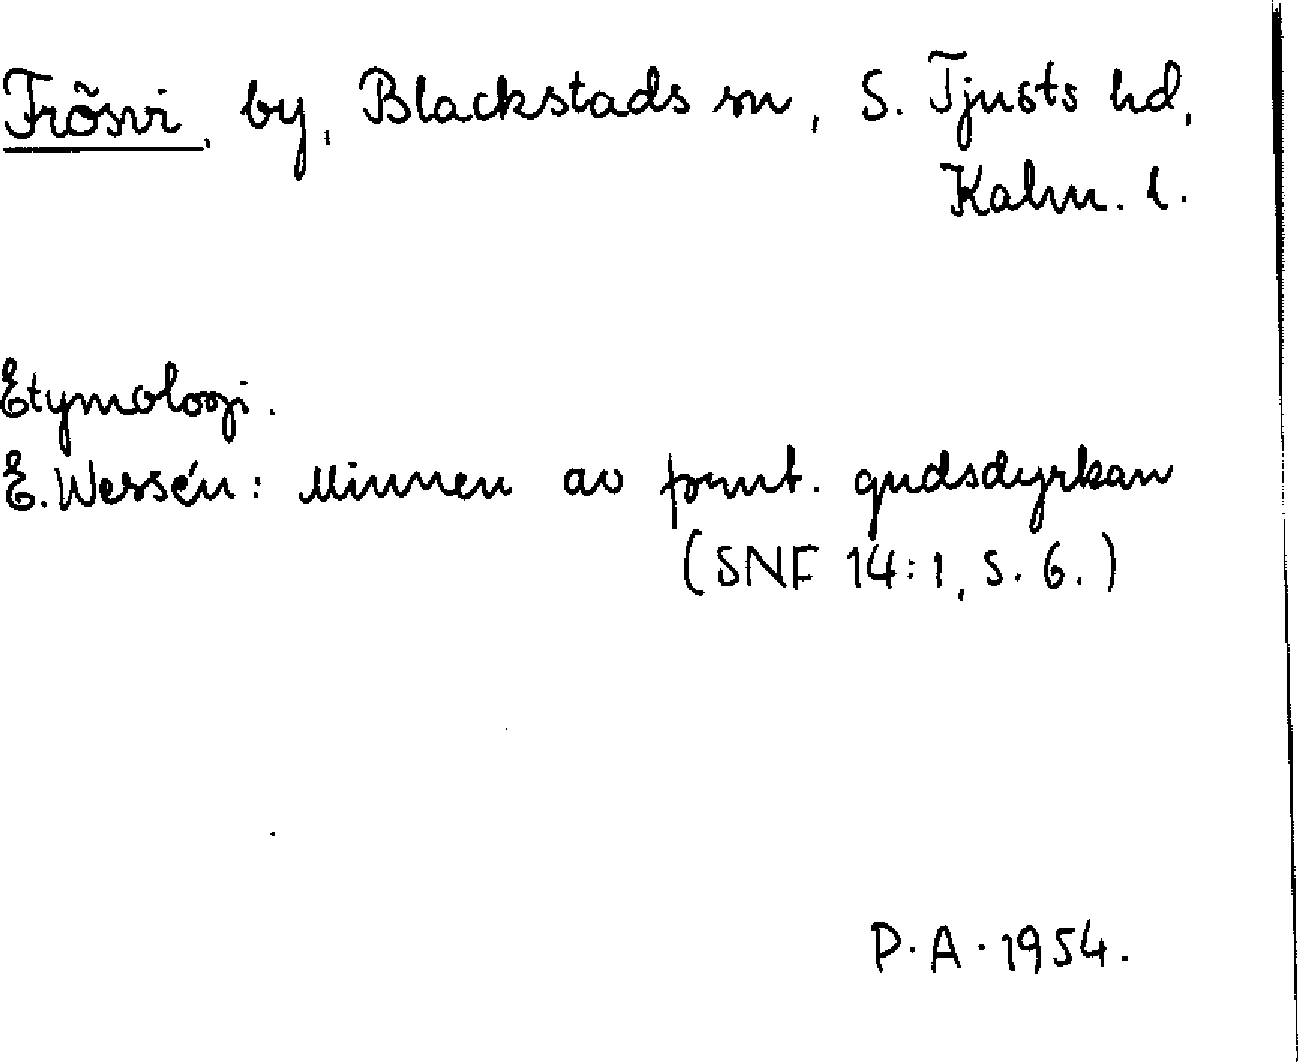 Frösvi, by, Blackstads sn, S. Tjusts hd,
Kalm. l.
Etymologi.
E. Wessén: Minnen av fornt. gudsdyrkan
(SNF 14:1, s. 6.)
P. A. 1954.